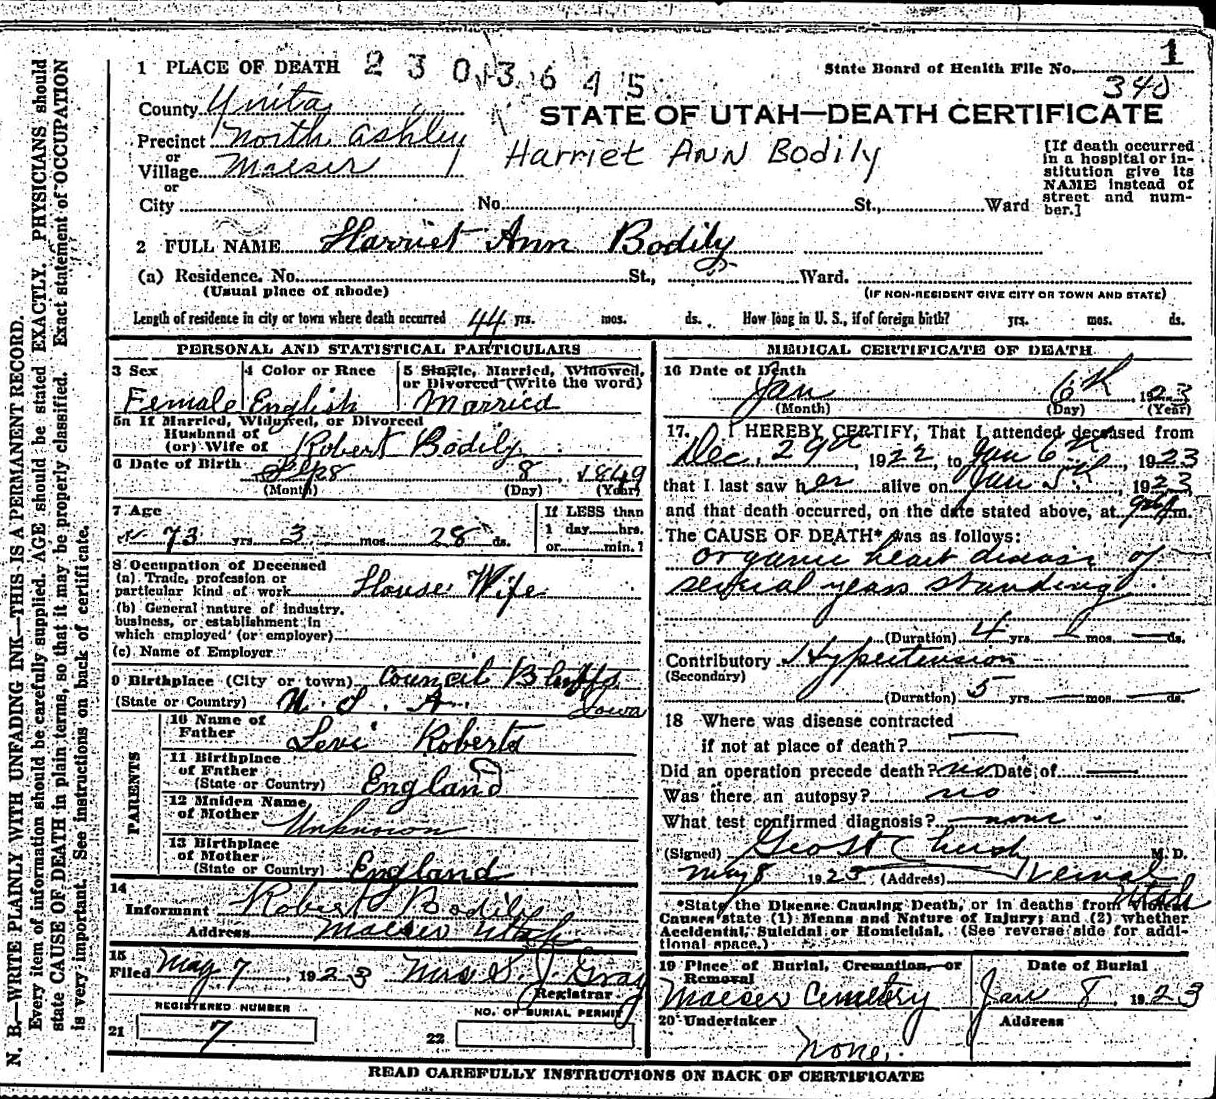 1
1 PLACE OF DEATH 2303645 State Board of Health File No. 340
County Unita
STATE OF UTAH—DEATH CERTIFICATE
Precinct North Ashley
or
Village Maeser
Harriet Ann Bodily
or
City No. St., Ward
[If death occurred
in a hospital or in-
stitution give its
NAME instead of
street and num-
ber.]
2 FULL NAME Harriet Ann Bodily
(a) Residence. No. St., Ward.
(Usual place of abode) (IF NON-RESIDENT GIVE CITY OR TOWN AND STATE)
Length of residence in city or town where death occurred 44 yrs. mos. ds. How long in U. S., if of foreign birth? yrs. mos. ds.
PERSONAL AND STATISTICAL PARTICULARS
3 Sex 4 Color or Race 5 Single, Married, Widowed,
or Divorced (Write the word)
Female English Married
5a If Married, Widowed, or Divorced
Husband of
(or) Wife of Robert Bodily
6 Date of Birth Sep 8 8, 1849
(Month) (Day) (Year)
7 Age If LESS than
73 yrs 3 mos. 28 ds. 1 day hrs.
or min.?
8 Occupation of Deceased
(a) Trade, profession or
particular kind of work House Wife
(b) General nature of industry.
business, or establishment in
which employed (or employer)
(c) Name of Employer
9 Birthplace (City or town) Council Bluffs
(State or Country) U. S. A. Iowa
PARENTS
10 Name of
Father Levi Roberts
11 Birthplace
of Father
(State or Country) England
12 Maiden Name
of Mother Unknown
13 Birthplace
of Mother
(State or Country) England
14
Informant Robert Bodily
Address Maeser Utah
15
Filed May 7, 1923 Mrs S. J. Gray
Registrar.
REGISTERED NUMBER NO. OF BURIAL PERMIT
21 7 22
MEDICAL CERTIFICATE OF DEATH
16 Date of Death
Jan 6th 1923
(Month) (Day) (Year)
17. I HEREBY CERTIFY, That I attended deceased from
Dec. 29th, 1922, to Jan 6th, 1923
that I last saw her alive on Jan 5th, 1923
and that death occurred, on the date stated above, at m.
The CAUSE OF DEATH* was as follows:
organic heart disease of
several years standing
(Duration) 4 yrs. mos. — ds.
Contributory Hypertension
(Secondary)
(Duration) 5 yrs. — mos. — ds.
18 Where was disease contracted
if not at place of death?
Did an operation precede death? no Date of —
Was there an autopsy? no
What test confirmed diagnosis? none
(Signed) M.D.
May 8 1923 (Address) Vernal
Utah
*State the Disease Causing Death, or in deaths from
Causes state (1) Means and Nature of Injury; and (2) whether
Accidental, Suicidal or Homicidal. (See reverse side for addi-
tional space.)
19 Place of Burial, Cremation, or
Removal Date of Burial
Maeser Cemetery Jan 8, 1923
20 Undertaker Address
none.
READ CAREFULLY INSTRUCTIONS ON BACK OF CERTIFICATE
N. B.—WRITE PLAINLY WITH UNFADING INK—THIS IS A PERMANENT RECORD.
Every item of information should be carefully supplied. AGE should be stated EXACTLY. PHYSICIANS should
state CAUSE OF DEATH in plain terms, so that it may be properly classified. Exact statement of OCCUPATION
is very important. See instructions on back of certificate.